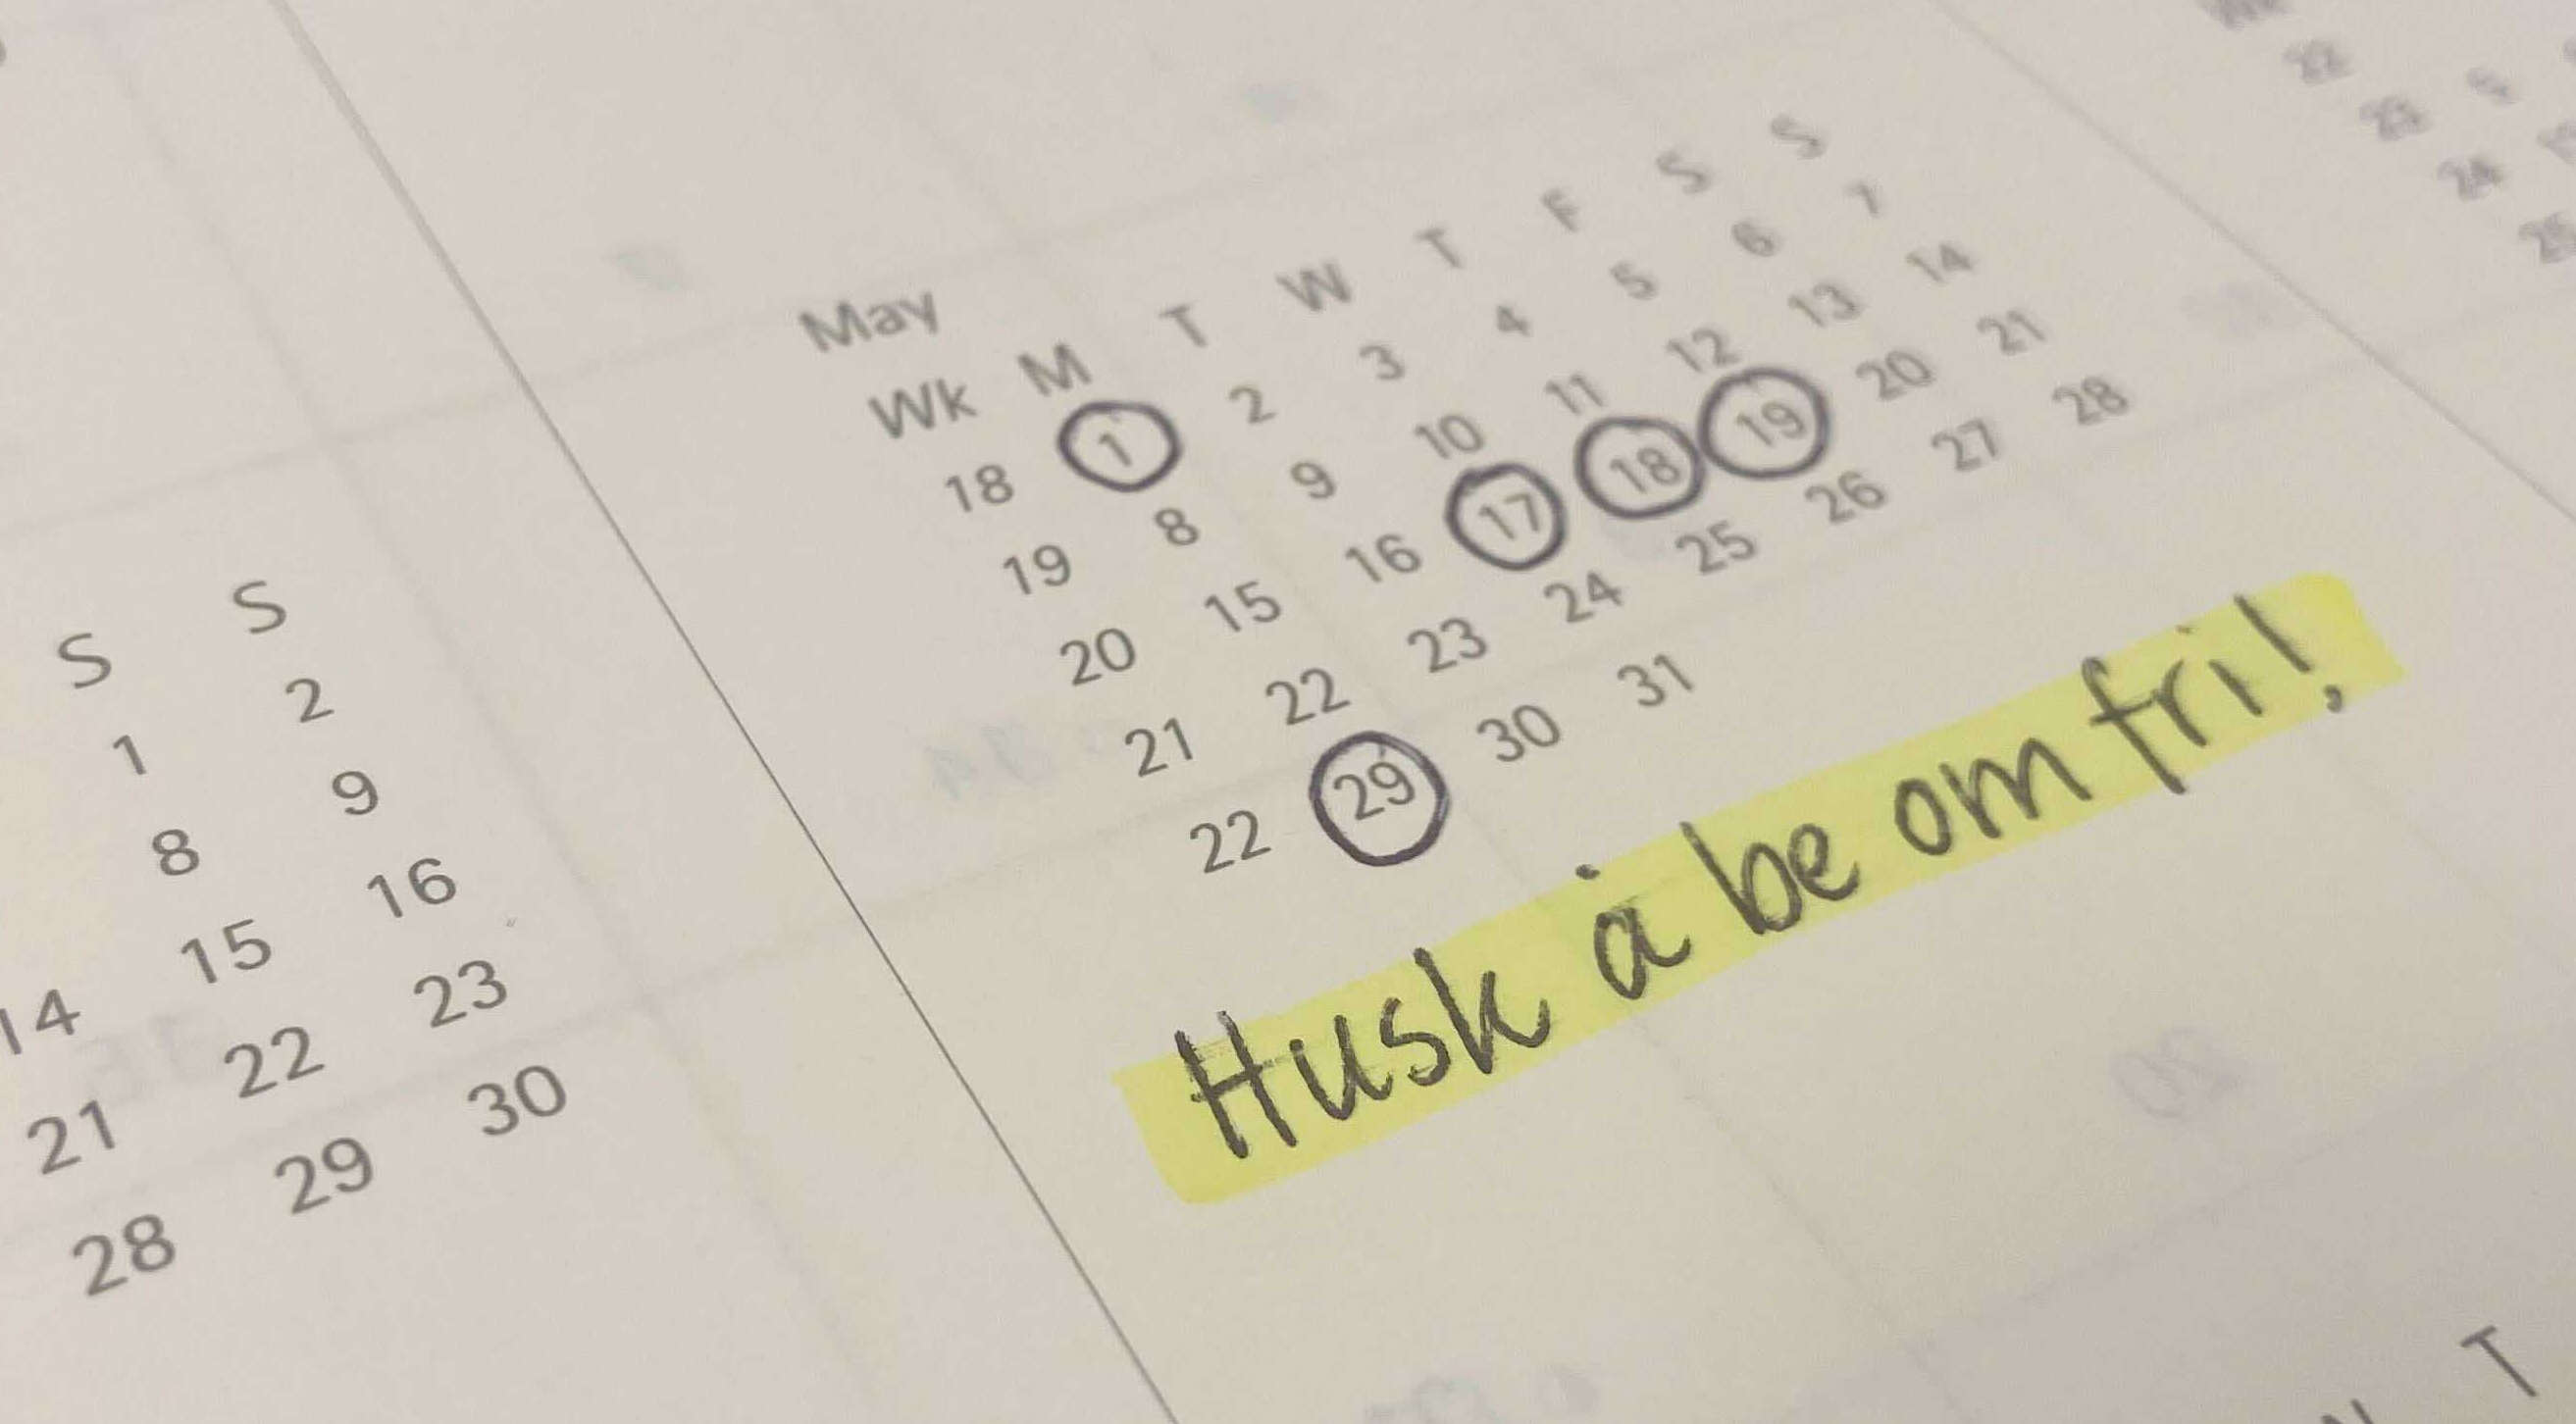 S S
1 2
8 9
15 16
14 22 23
21 29 30
28
May
Wk M T W T F S S
18 1 2 3 4 5 6 7
19 8 9 10 11 12 13 14
20 15 16 17 18 19 20 21
21 22 23 24 25 26 27 28
22 29 30 31
Husk å be om fri!
22
23
24
25
T